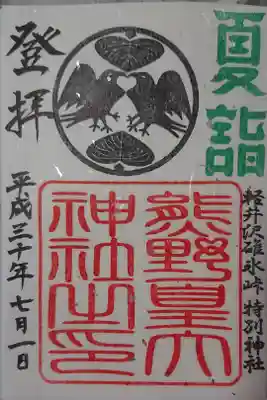 夏詣
軽井沢碓氷峠 特別神社
登拝
熊野皇大
神社之印
平成三十年 七月一日